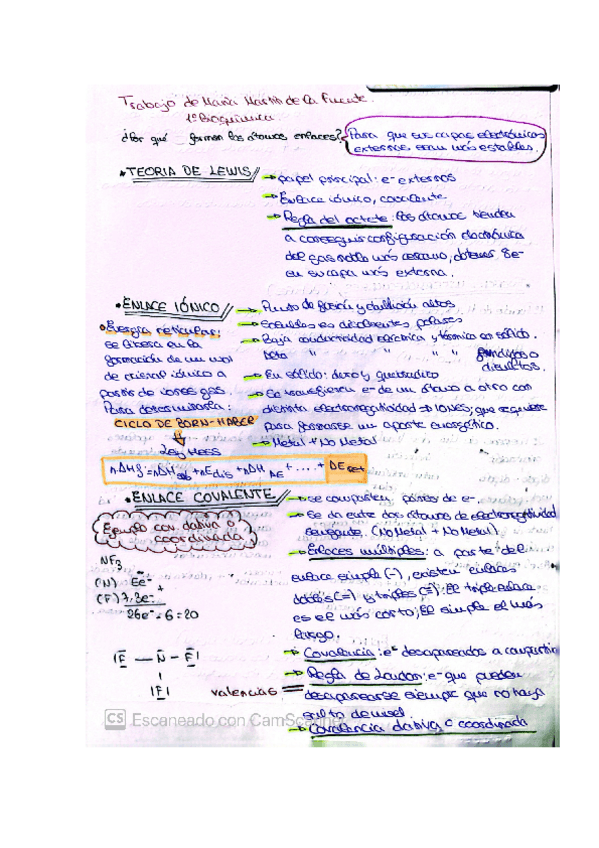 Trabajo de María Martín de la Fuente.
1º Bioquímica
¿Por qué forman los átomos enlaces? Para que sus capas electrónicas
externas sean más estables.
TEORIA DE LEWIS
papel principal: e- externos
Enlace iónico, covalente
Regla del octete: los átomos tienden
a conseguir configuración electrónica
del gas noble más cercano, obtener 8e-
en su capa más externa.
ENLACE IÓNICO
Punto de fusión y ebullición altos
Solubles en disolventes polares
Baja conductividad eléctrica y térmica en sólido.
Alta " " " " " fundidos o
disueltos.
En sólido: duro y quebradizo
Se transfieren e- de un átomo a otro con
distinta electronegatividad → IONES; que requiere
para formarse un aporte energético.
Metal + No Metal
Energía reticular:
se libera en la
formación de un mol
de cristal iónico a
partir de iones gas.
Para determinarla:
CICLO DE BORN-HABER
Ley Hess
nΔHf = nΔHsub + nEdis + nΔH AE + .... + ΔE ret
ENLACE COVALENTE
se comparten pares de e-.
Se da entre dos átomos de electronegatividad
semejante. (No Metal + No Metal)
Enlaces múltiples: a parte del
enlace simple (-), existen enlaces
dobles (=) y triples (≡). El triple enlace
es el más corto; El simple el más
largo.
Covalencia: e- desapareados a compartir
Regla de London: e- que pueden
desaparearse siempre que no haya
salto de nivel
Covalencia dativa o coordinada
Ejemplo cov. dativa o
coordinada
NF3
(N) 5e- +
(F) 7·3e-
26e- - 6 = 20
|F — N — F|
|F|
valencias
CS Escaneado con CamScanner